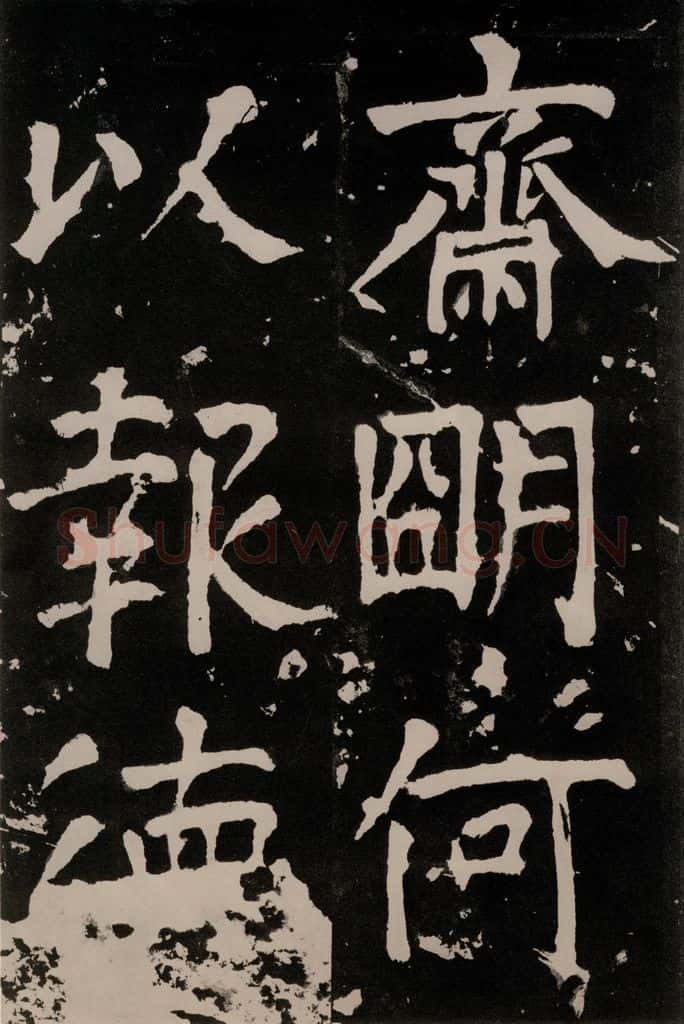 齋朙何
以報德
Shufawang.CN